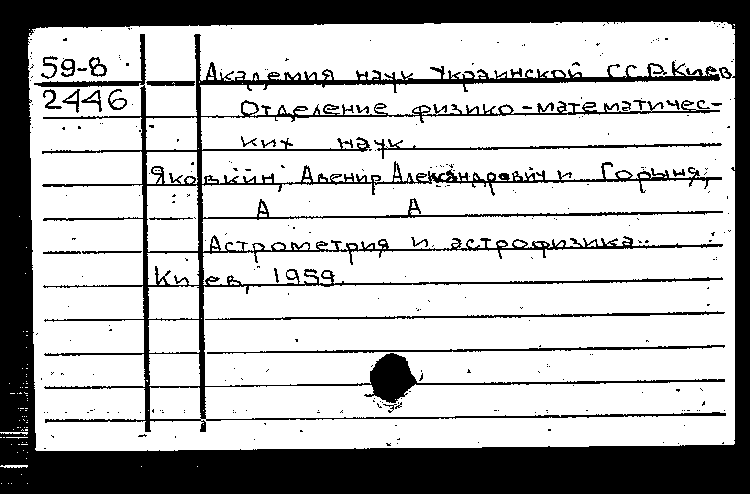 59-8 Академия наук Украинской ССР. Киев
2446 Отделение физико-математичес-
ких наук.
Яковкин, Авенир Александрович и Горыня,
А А
Астрометрия и астрофизика.
Киев, 1959.